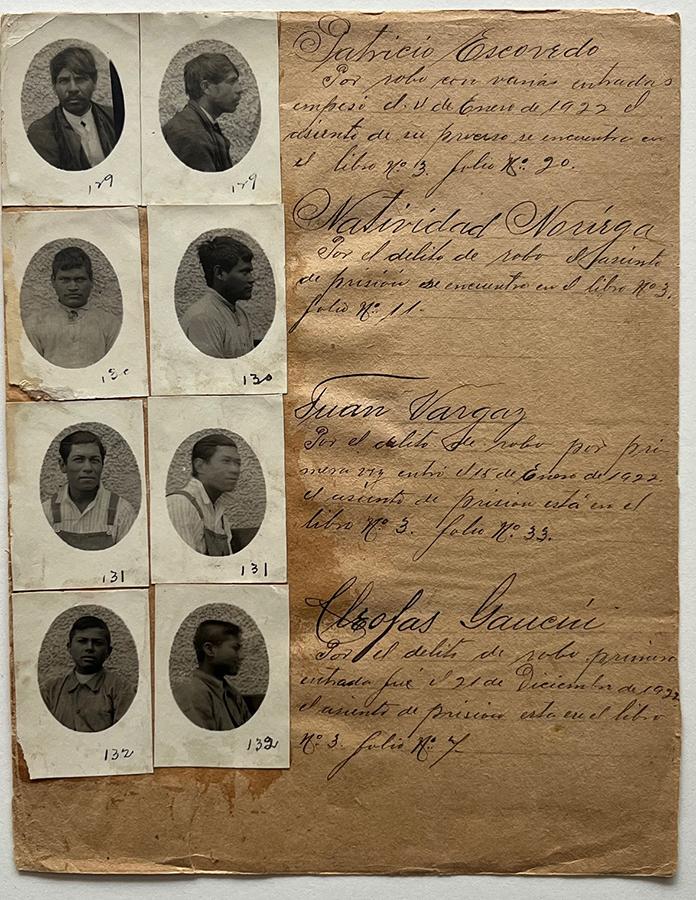 129
129
Patricio Escovedo
Por robo con varias entradas
empesó el 4 de Enero de 1922 el
asiento de su proceso se encuentra en
el libro Nº 3. folio Nº 20.
130
130
Natividad Noriega
Por el delito de robo el asiento
de prisión se encuentra en el libro Nº 3.
folio Nº 11.
131
131
Juan Vargaz
Por el delito de robo por pri-
mera vez entró el 15 de Enero de 1922.
el asiento de prisión está en el
libro Nº 3. folio Nº 33.
132
132
Cleofás Gaucín
Por el delito de robo primera
entrada fué el 21 de Diciembre de 192
el asiento de prision esta en el libro
Nº 3. folio Nº 7